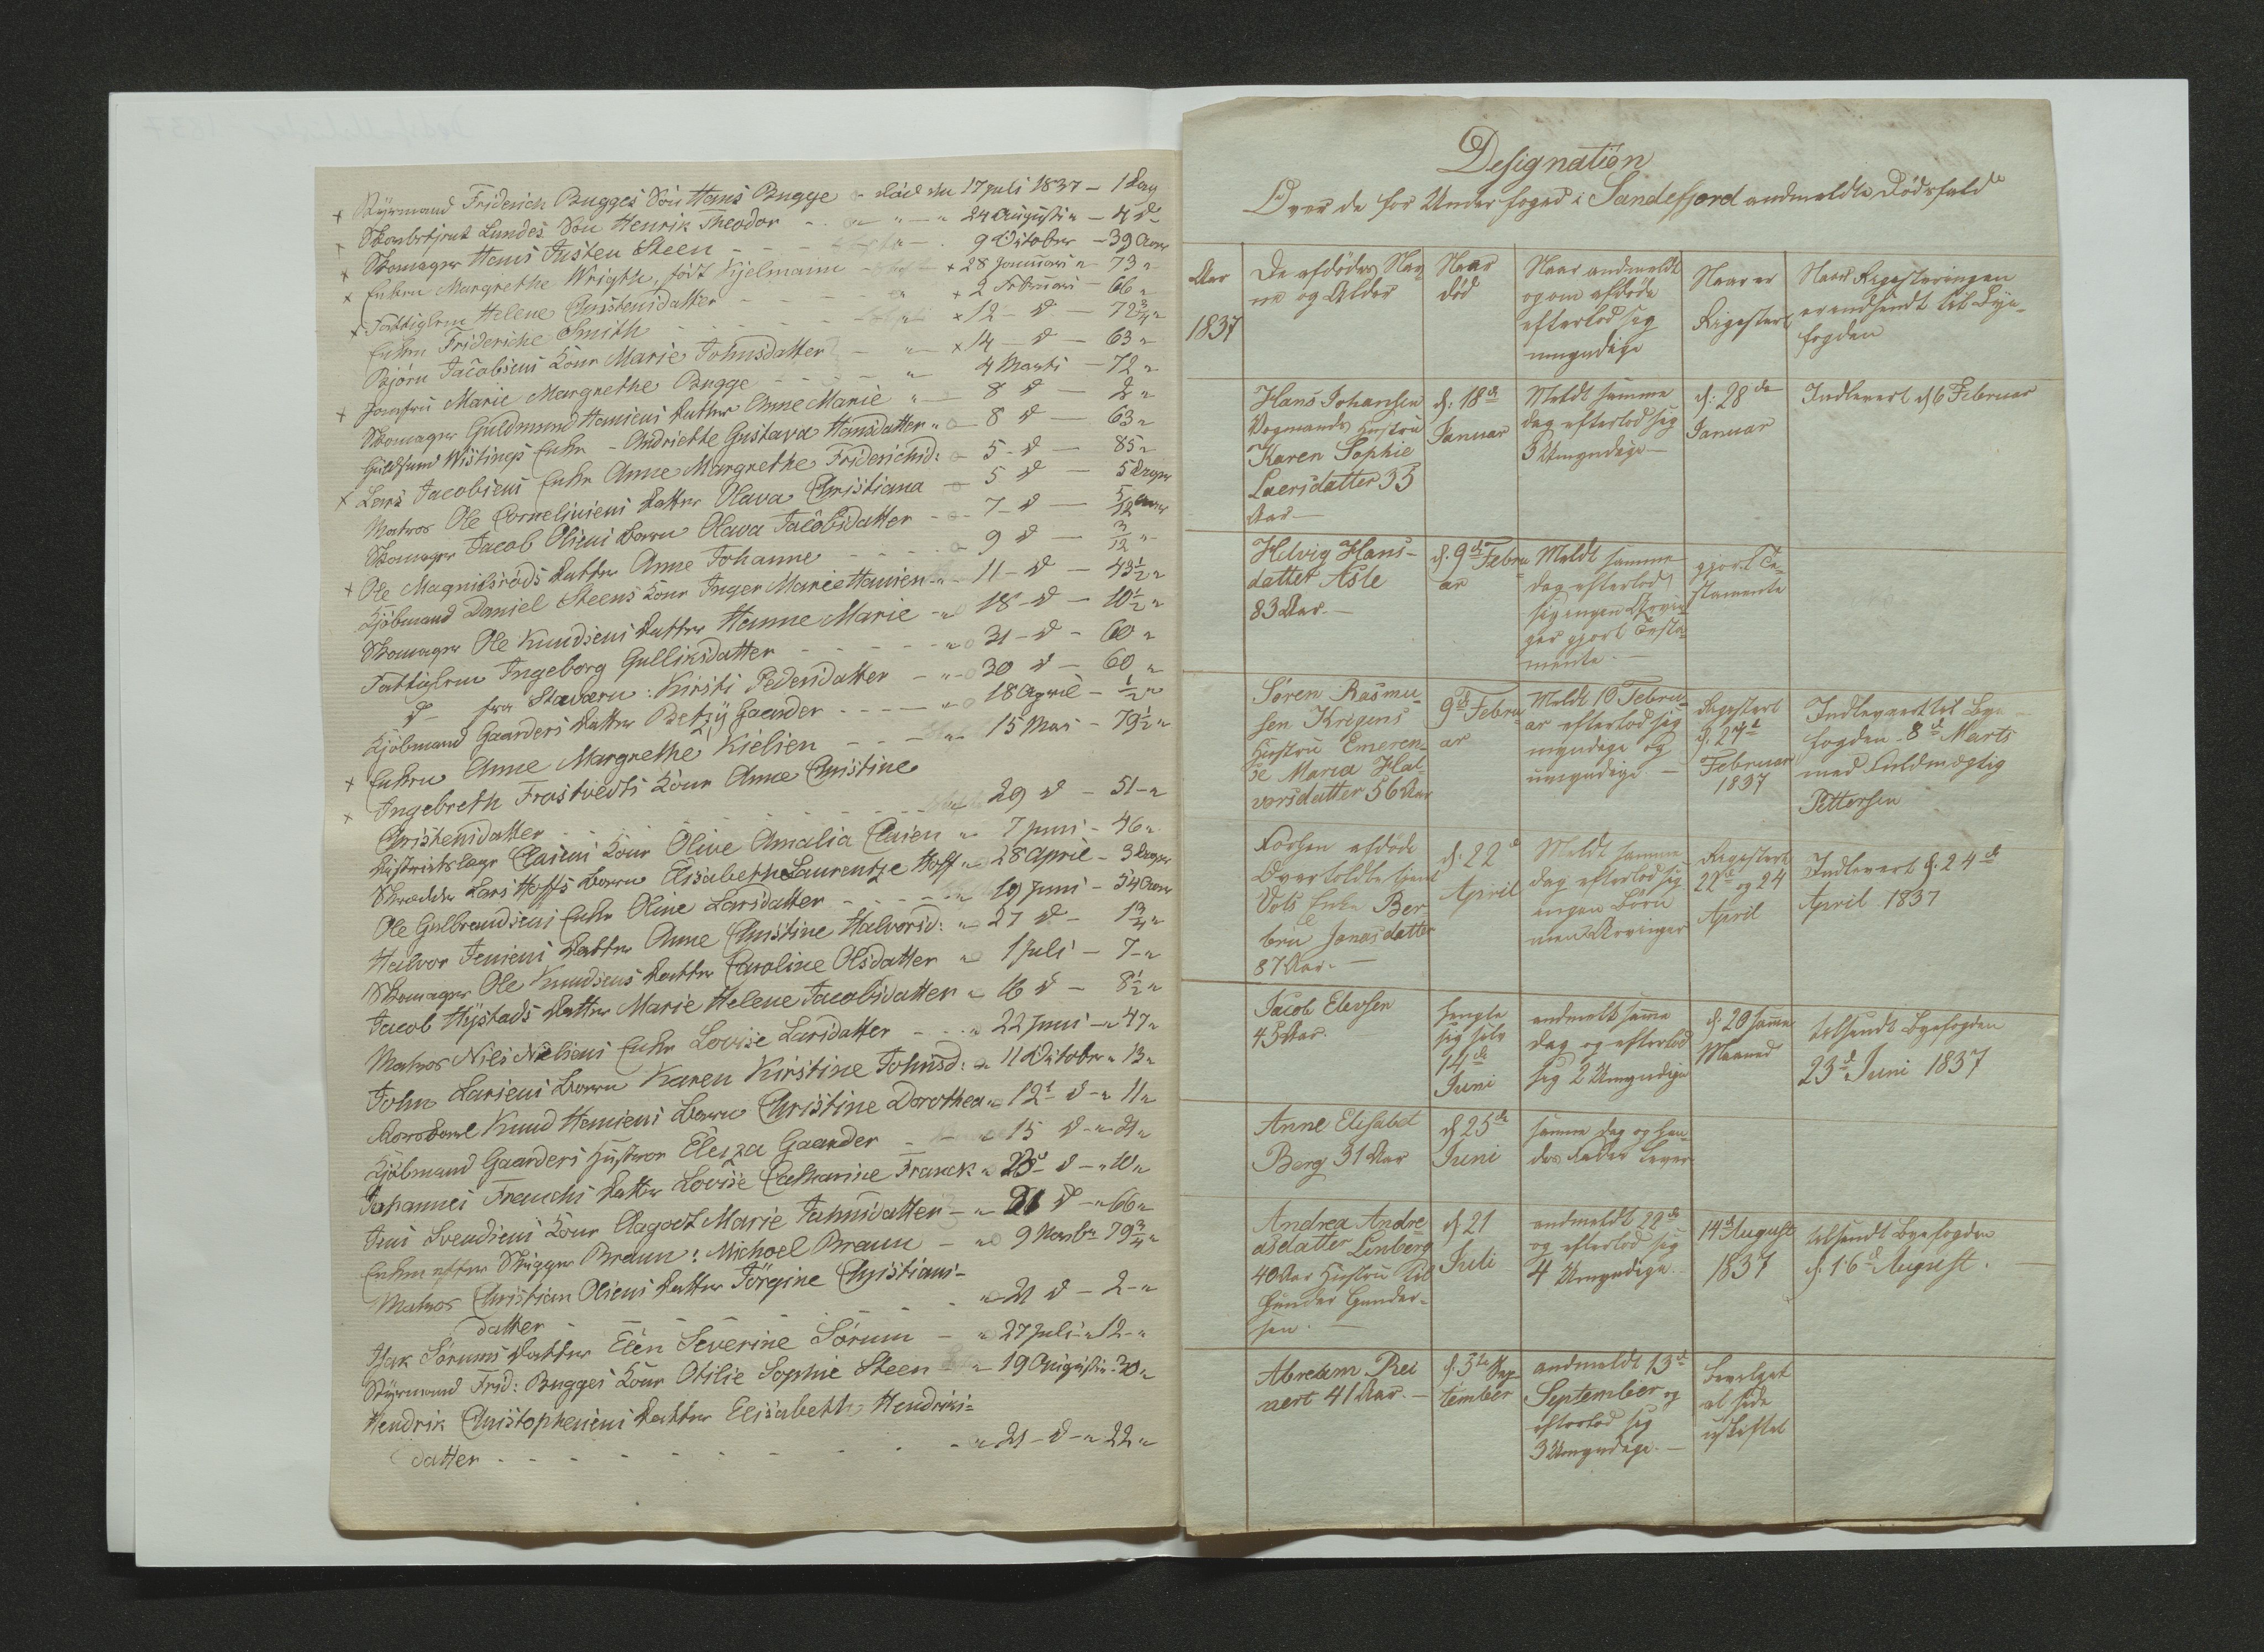 × Styrmand Friderich Bugges Søn Hans Bugge - død den 17 Juli 1837 - 1 Dag
Lundes Søn Henrik Theodor - - " - " 24 Augusti " - 4 d
× Skomager Hans Austen Steen - - - 9 Octobr - 39 Aar
× Enken Margrethe Wright, født Kjelmann - × 28 Januari " 73 "
× Fattiglem Helene Christensdatter - - " × 2 Februari - 66 "
Enken Frideriche Smith - - - " × 12 - d - 72 3/4 "
Bjørn Jacobsens Kone Marie Johnsdatter - " × 14 - d - 63 "
× Jomfru Marie Margrethe Bugge - - " 4 Marti - 72 "
Skomager Guldmund Hansens Datter Anne Marie " - 8 d - 2 "
Wistings Enke - Andriette Gustava Hansdatter " 8 d - 63 "
× Lars Jacobsens Enke Anne Margrethe Friderichsd: 5 - d - 85 "
Matros Ole Corneliusens Datter Olava Christiana - 5 d - 5 Dage
Skomager Jacob Olsens Barn Olava Jacobsdatter - 7 - d - 5/12 Aar
× Ole Magnilsrøds Datter Anne Johanne - - - 9 d - 3/12 "
Kjøbmand Daniel Steens Kone Inger Marie Hansen - 11 - d - 43 1/2 "
Skomager Ole Knudsens Datter Hanne Marie - 18 - d - 10 1/2 "
Fattiglem Ingeborg Gulliksdatter - - - 31 - d - 60 "
d - fra Stavern: Kirsti Pedersdatter - " 30 d - 60 "
Kjøbmand Gaarders Datter Betzy Gaarder - - - 18 April - 1/2 "
× Enken Anne Margrethe Kielsen - - - 15 Mai - 79 1/2 "
× Ingebreth Frostvedts Kone Anne Christine
Christensdatter - - - - - 29 d - 51 - "
Districtslæge Clasens Kone Olive Amalia Clasen " 7 Juni - 46 "
Skrædder Lars Hoffs Barn Elisabeth Laurentze Hoff " 28 April - 3 Dage
Ole Gulbrandsens Enke Oline Larsdatter - - - 19 Juni - 54 Aar
Halvor Jensens Datter Anne Christine Halvorsd: " 27 d - 1 3/4 "
Skomager Ole Knudsens Datter Caroline Olsdatter " 1 Juli - 7 - "
Jacob Hystads Datter Marie Helene Jacobsdatter " 16 d - 8 1/2 "
Matros Niels Nielsens Enke Lovise Larsdatter - - " 22 Juni - " 47 "
John Larsens Barn Karen Kirstine Johnsd: " 11 Octobr " 13 "
Knud Hansens Barn Christine Dorothea " 12 - d - " 11 "
Kjøbmand Gaarders Hustroe Eliza Gaarder - - " 15 d - " 21 "
Johannes Francks Datter Lovise Catharine Franck " d - " 10 "
Jens Svendsens Kone Aagodt Marie Jahnsdatter - " 31 d - " 66 "
Enken efter Skipper Braun: Michael Braun - " 9 Novbr " 79 3/4 "
Matros Christian Olsens Datter Jørgine Christians-
datter - - - - " 21 d - 2 - "
Isak Sørums Datter Elen Severine Sørum - " 27 Juli " 12 - "
Styrmand Frid: Bugges Kone Otilie Sophie Steen " 19 Augusti " 30 "
Hendrik Christophersens Datter Elisabeth Hendriks-
datter - - - - - - " 21 - d - " 22 "
Designation
Over de for Underfoged i Sandefjord andmeldte Dødsfald
Aar
1837
De afdødes Nav-
ne og Alder
Naar
død
Naar andmeldt
og om afdøde
efterlod sig
umyndige
Naar er
Rigestert
Naar Rigesteringen
er indsendt til Bye-
fogden
Hans Johansen
Vognmands Hustru
Karen Sophie
Laersdatter 33
Aar -
d: 18de
Januar
Meldt samme
dag efterlod sig
3 Umyndige -
d: 28de
Januar
Indlevert d 6 Februar
Helvig Hans-
datter Asle
83 Aar. -
d. 9de Febru
ar
Meldt samme
dag efterlod
sig ingen Arvin
ger gjort Testa-
mente -
gjort Te-
stamente
Søren Rasmu-
sen Krøgens
Hustru Emeren-
se Maria Hal-
vorsdatter 56 Aar
9de Febru
ar
Meldt 10 Febru-
ar efterlod sig
myndige og
umyndige -
Regestert
d. 27de
Februar
1837
Indleveret til Bye
fogden 8de Marts
med Fuldmægtig
Pettersen
afdøde
Overtoldbetjent
Vols Enke Ber-
the Jonasdatter
87 Aar -
d: 22de
April
Meldt samme
dag efterlod sig
ingen Børn
men Arvinger
Regestert
22de og 24
April
Indlevert d: 24de
April 1837
Jacob Elevsen
45 Aar.
hengte
sig selv
14de
Juni
andmelt same
dag og efterlod
sig 2 Umyndige
d 20 same
Maaned
tilsendt Byefogden
23de Juni 1837
Anne Elisabet
Berg 31 Aar
d 25de
Juni
samme dag og hen-
des Fader lever
Andrea Andre
asdatter Lenberg
40 Aar Hustru til
Gunder Gunder-
sen. -
d 21
Juli
andmeldt 22de
og efterlod sig
4 Umyndige
14de August
1837
tilsendt Byefogden
d: 16de August.
Abraham Rei
nert 41 Aar. -
d: 3de Sep-
tember
andmeldt 13de
September og
efterlod sig
3 Umyndige. -
bevelget
at side
uskiftet